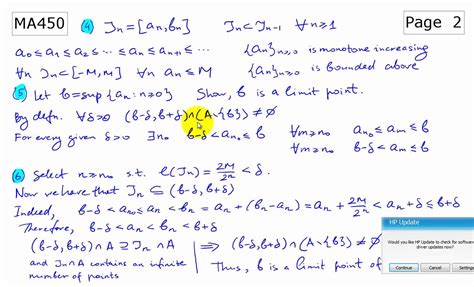 MA450
(4) Jn = [an, bn]   Jn ⊂ Jn-1 ∀n≥1
Page 2
a0 ≤ a1 ≤ a2 ≤ ... ≤ an ≤ an+1 ≤ ...   {an}n≥0 is monotone increasing
∀n Jn ⊂ [-M, M]   ∀n an ≤ M   {an}n≥0 is bounded above
(5) Let b = sup {an : n≥0}   Show, b is a limit point.
By defn. ∀δ>0 (b-δ, b+δ) ∩ (A \ {b}) ≠ ∅
For every given δ>0 ∃n0 b-δ < an0 ≤ b   ∀n≥n0 b-δ < an ≤ b
(6) Select n≥n0 s.t. l(Jn) = 2M/2^n < δ.
Now we have that Jn ⊂ (b-δ, b+δ)
Indeed, b-δ < an0 ≤ an < bn = an + (bn - an) = an + 2M/2^n < an + δ ≤ b+δ
Therefore, b-δ < an < bn < b+δ
(b-δ, b+δ) ∩ A ⊇ Jn ∩ A ⇒ (b-δ, b+δ) ∩ (A \ {b}) ≠ ∅
and Jn ∩ A contains an infinite number of points
Thus, b is a limit point of
HP Update
Would you like HP Update to check for software driver updates now?
Continue
Cancel
Settings